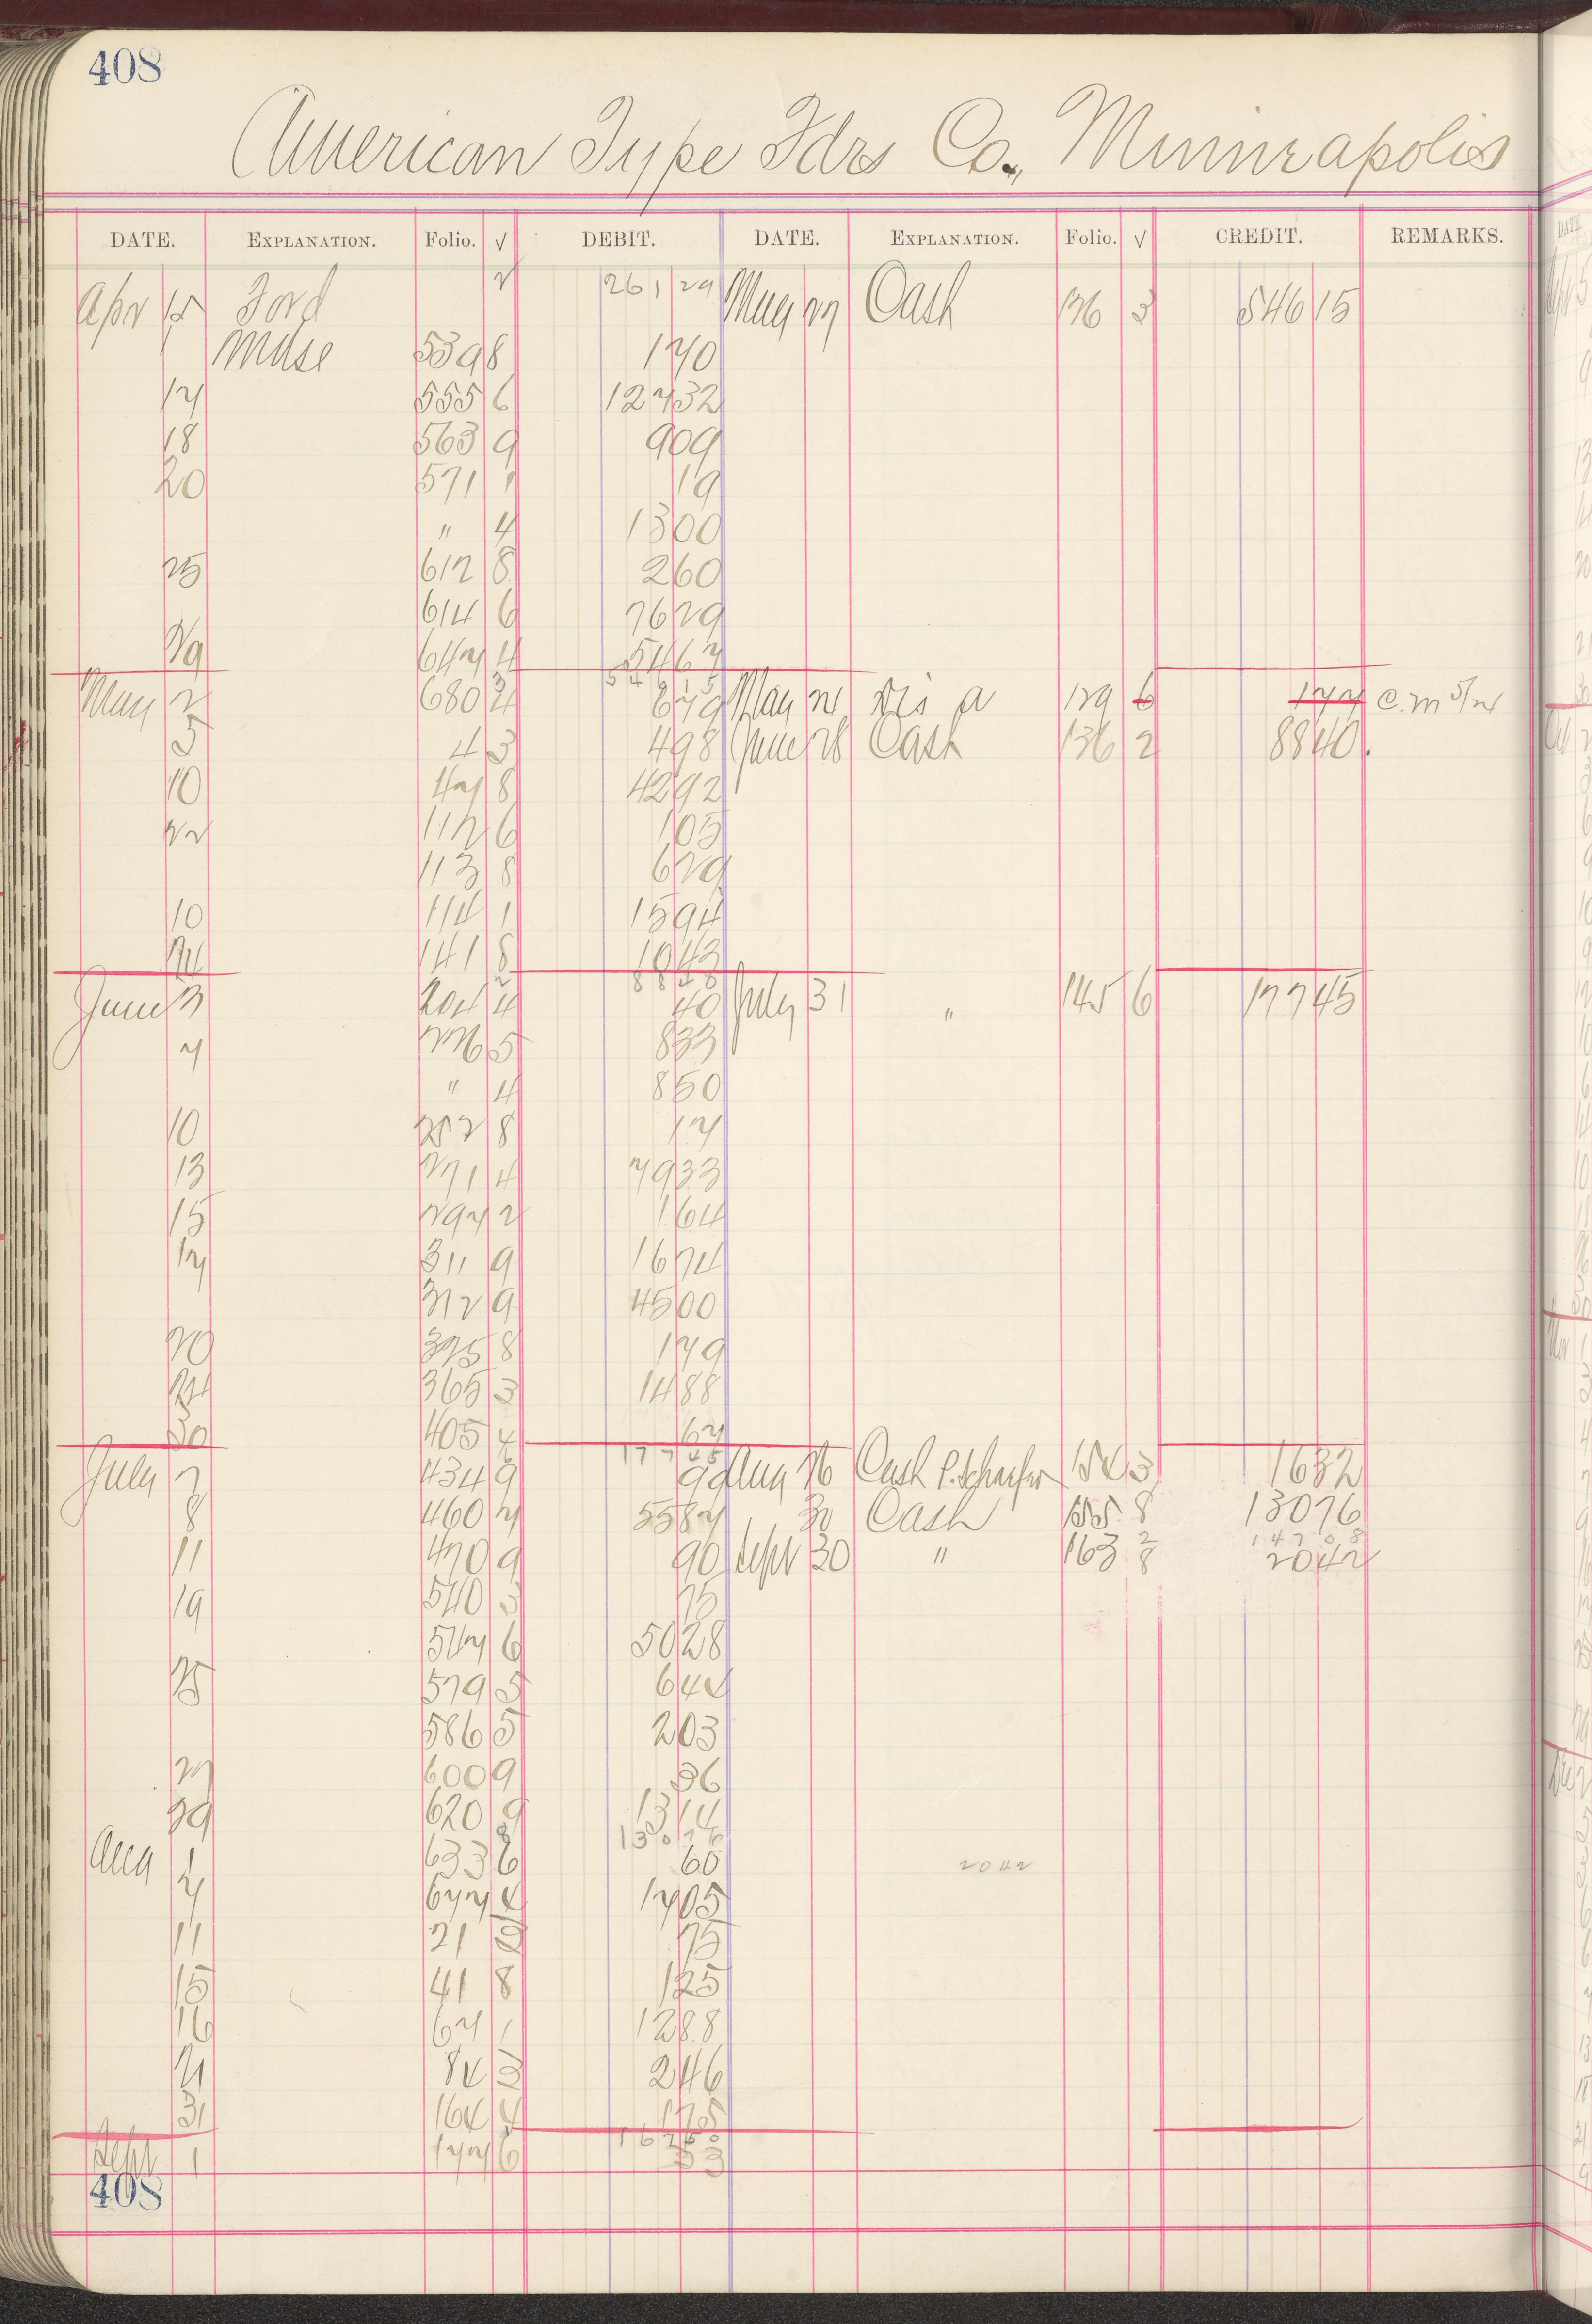 408
American Type Fdrs Co., Minneapolis
DATE. EXPLANATION. Folio. √ DEBIT. DATE. EXPLANATION. Folio. √ CREDIT. REMARKS.
Apr 15 Ford 261 29 May 27 Cash 126 3 546 15
Mdse 539 8 1 70
17 555 6 127 32
18 563 9 9 09
20 571 1 19
" 4 13 00
25 612 8 2 60
614 6 76 29
29 647 4 54 67
May 2 680 2 6 79 May 21 129 6 1 77 C.M.
5 4 3 4 98 June 28 Cash 136 2 88 40
10 47 8 42 92
112 6 1 05
113 8 6 29
10 114 1 15 94
24 141 8 10 43
June 3 204 4 40 July 31 " 145 6 177 45
7 5 8 33
" 4 8 50
10 8 17
13 271 4 79 33
15 297 2 1 64
17 311 9 16 74
312 9 45 00
20 325 8 1 79
24 365 3 14 88
30 405 4 67
177 45
July 2 434 9 99 Aug 16 Cash 3 16 32
8 460 7 55 87 30 Cash 155 8 130 76
147 08
11 470 9 90 Sept 30 " 163 8 20 42
19 540 3 75
547 6 50 28
25 579 5 6 44
586 5 2 03
27 600 9 36
29 620 9 13 14
130 76
Aug 1 633 6 60 2042
7 677 4 17 05
11 21 3 75
15 41 8 1 25
16 67 1 12 88
21 84 3 2 46
31 164 4 1 75
Sept 1 177 6 53
408